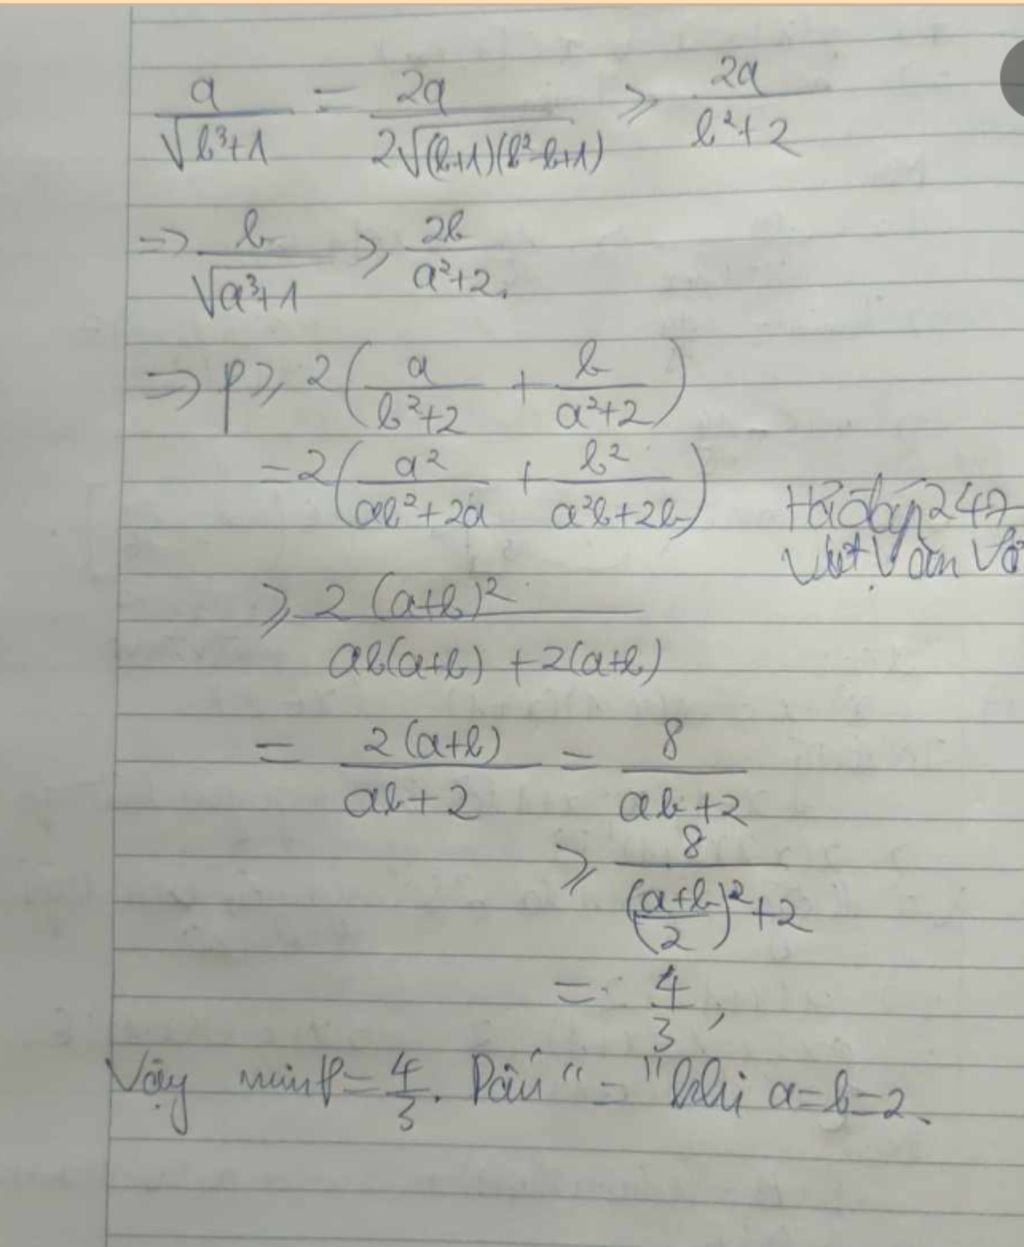 a/√(b³+1) = 2a/(2√((b+1)(b²-b+1))) ≥ 2a/(b²+2)
=> b/√(a³+1) ≥ 2b/(a²+2).
=> P ≥ 2(a/(b²+2) + b/(a²+2))
= 2(a²/(ab²+2a) + b²/(a²b+2b))
Hỏi đáp 247
Việt Văn Võ
≥ 2(a+b)²/(ab(a+b)+2(a+b))
= 2(a+b)/(ab+2) = 8/(ab+2)
≥ 8/(((a+b)/2)²+2)
= 4/3,
Vậy minP = 4/3. Dấu "=" khi a=b=2.